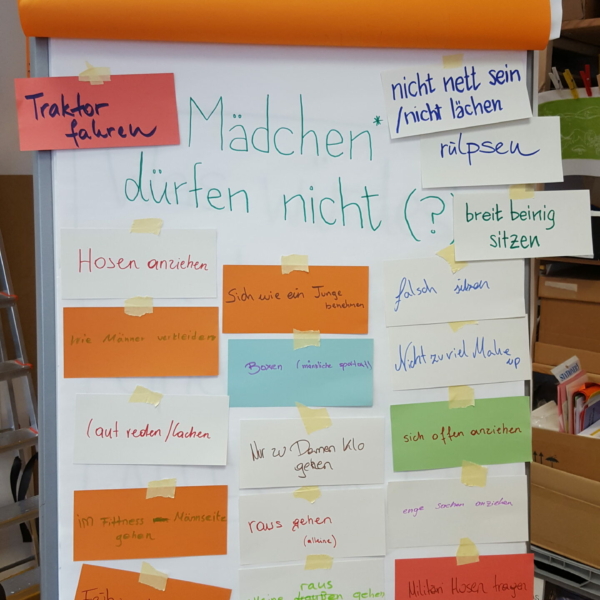 Traktor
fahren
Mädchen*
dürfen nicht (?)
nicht nett sein
/nicht lächen
rülpsen
breit beinig
sitzen
Hosen anziehen
Sich wie ein Junge
benehmen
falsch sitzen
wie Männer verkleiden
Boxen (männliche
Nicht zu viel Make
up
laut reden/lachen
Nur zu Damen Klo
gehen
sich offen anziehen
im Fittness Männseite
gehen
raus gehen
(alleine)
enge Sachen anziehen
raus
gehen
Militäri Hosen tragen